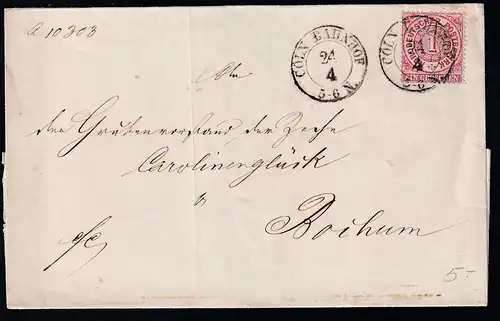 a 10303
CÖLN BAHNHOF
24
4
5-6 N.
CÖLN
4
NORDDEUTSCHER POSTBEZIRK
1
EIN GROSCHEN
An
den Grubenvorstand der Zeche
Carolinenglück
Bochum
5-